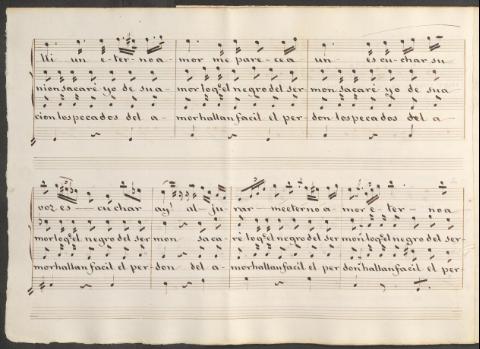 Mi un e-ter-no a mor me pa-re-ce a un es cu-char su
nion sacaré yo de su a mor loq.e el negro del ser mon sacaré yo de su a
cion los pecados del a- mor hallan facil el per don los pecados del a-
voz es- cu char ay! al ju rar- me eterno a mor e-ter- no a
mor loq.e el negro del ser mon saca- ré loq.e el negro del ser mon loq.e el negro del ser-
mor hallan facil el per don del a- mor hallan facil el per don hallan facil el per-